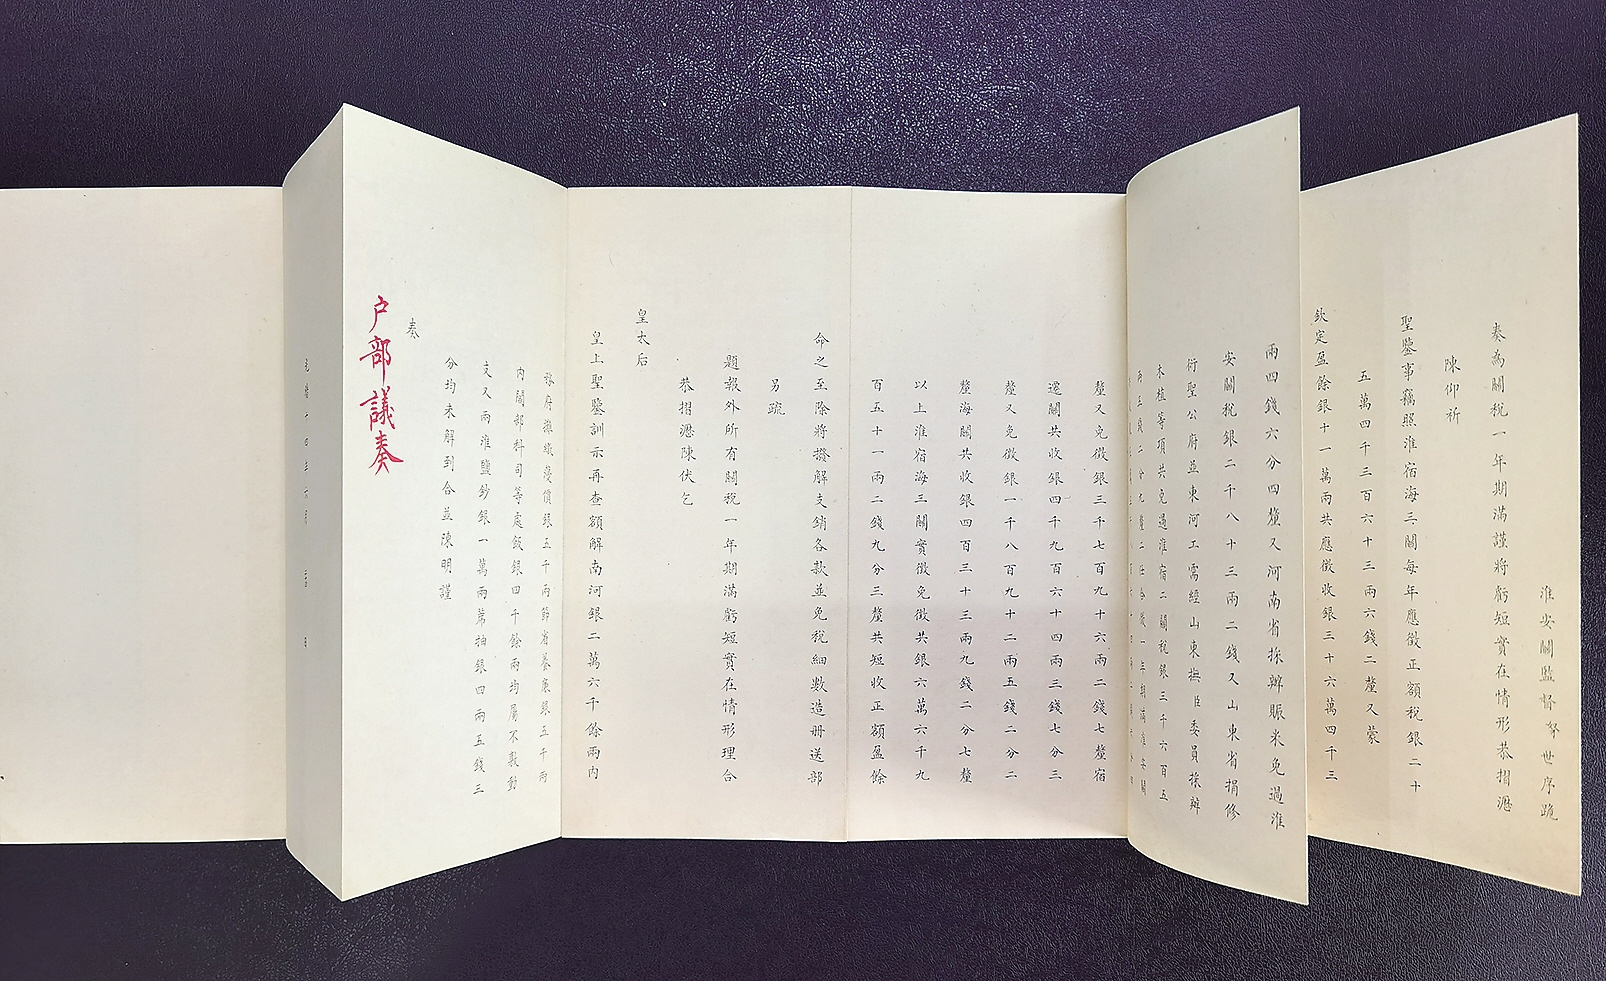 淮安關監督
世序跪
奏為關稅一年期滿謹將虧短實在情形恭摺瀝
陳仰祈
聖鑒事竊照淮宿海三關每年應徵正額稅銀二十
五萬四千三百六十三兩六錢二釐又蒙
欽定盈餘銀十一萬兩共應徵收銀三十六萬四千三
兩四錢六分四釐又河南省採辦賑米免過淮
安關稅銀二千八十三兩二錢又山東省捐修
衍聖公府並東河工需經山東撫臣委員採辦
木植等項共免過淮宿二關稅銀三千六百五
釐又免徵銀三千七百九十六兩二錢七釐宿
遷關共收銀四千九百六十四兩三錢七分三
釐又免徵銀一千八百九十二兩五錢二分二
釐海關共收銀四百三十三兩九錢二分七釐
以上淮宿海三關實徵免徵共銀六萬六千九
百五十一兩二錢九分三釐共短收正額盈餘
命之至除將撥解支銷各款並免稅細數造冊送部
另疏
題報外所有關稅一年期滿虧短實在情形理合
恭摺瀝陳伏乞
皇太后
皇上聖鑒訓示再查額解南河銀二萬六千餘兩內
務府攤繳溢價銀五千兩節省養廉銀五千兩
內閣部科司等處飯銀四千餘兩均屬不敷動
支又兩淮鹽鈔銀一萬兩蓆抽銀四兩五錢三
分均未解到合並陳明謹
奏
戶部議奏
光緒十四年六月